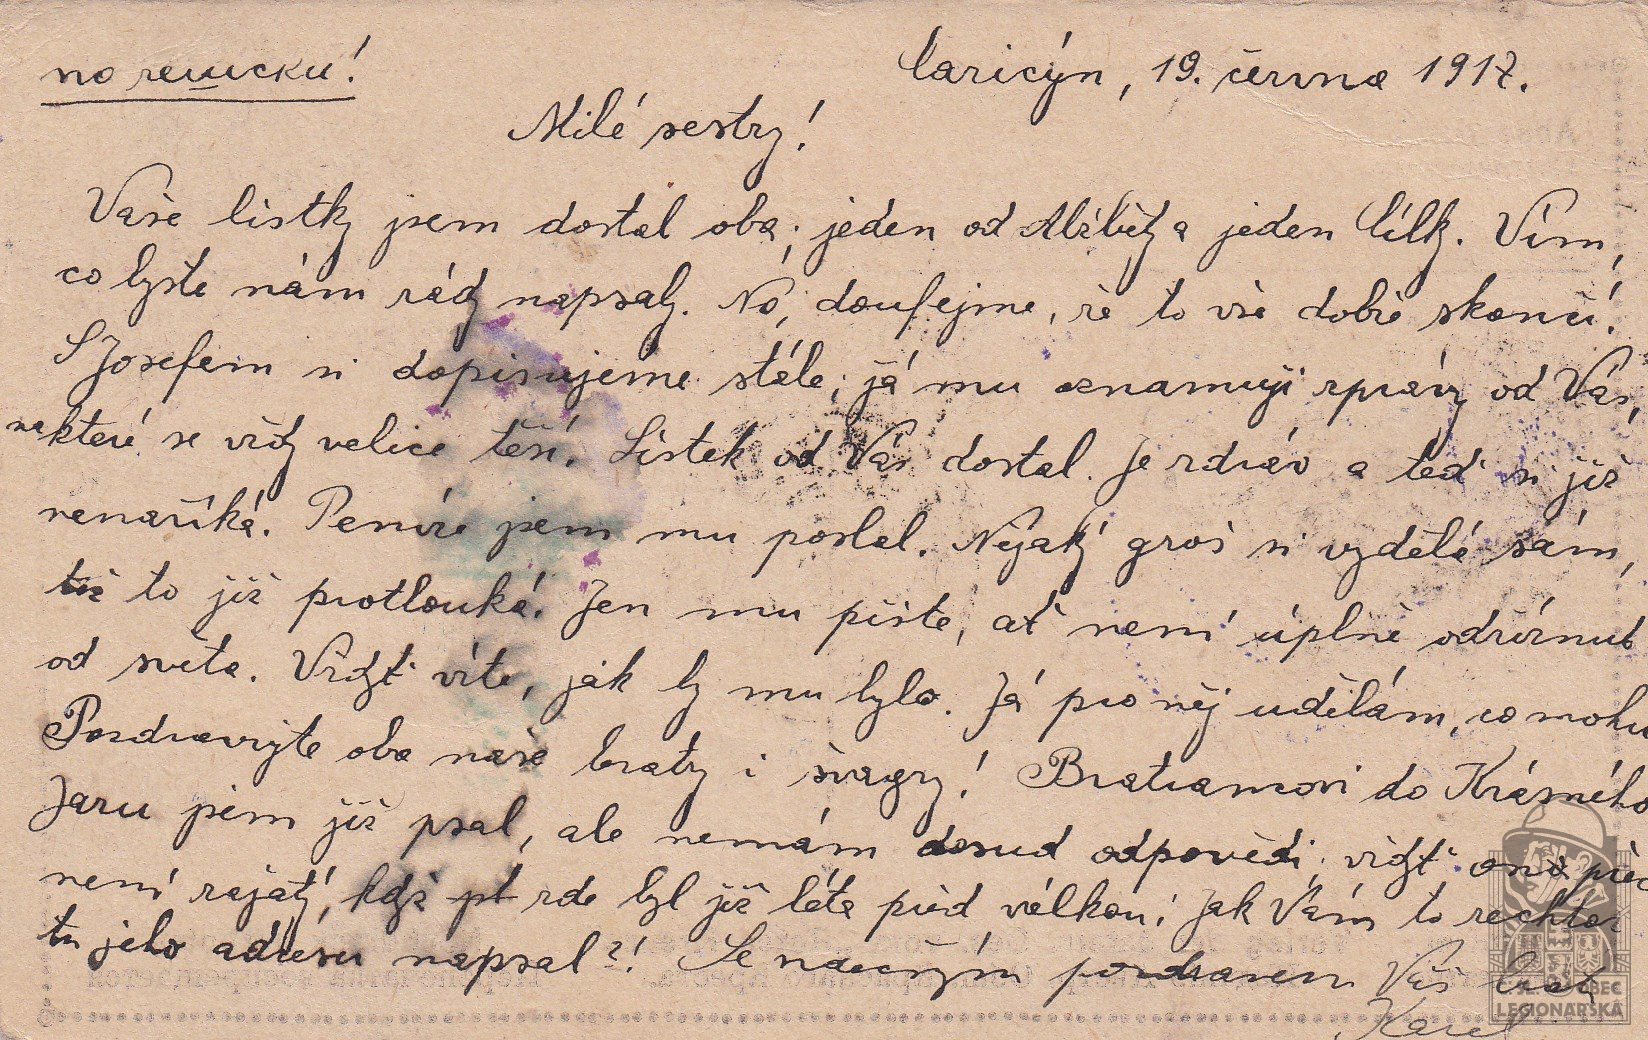 по чешски!
Caricýn, 19. června 1917.
Milé sestry!
Vaše lístky jsem dostal oba; jeden od Alžběty a jeden Cilky. Vím,
co byste nám rády napsaly. Nó, doufejme, že to vše dobře skončí!
S Josefem si dopisujeme stále; já mu oznamuji zprávy od Vás,
na které se vždy velice těší. Lístek od Vás dostal. Je zdráv a teď si již
nenaříká. Peníze jsem mu poslal. Nějaký groš si vydělá sám,
též to již protlouká. Jen mu pište, ať není úplně odříznut
od světa. Vždyť víte, jak by mu bylo. Já pro něj udělám, co mohu
Pozdravujte oba naše bratry i švagry! Bratranovi do Krásného
Jaru jsem již psal, ale nemám dosud odpovědi; vždyť on
není zajatý, když zde byl již léta před válkou; Jak Vám to
tu jeho adresu napsal?! Se srdečným pozdravem Váš bratr
Karel
ČS. OBEC
LEGIONÁŘSKÁ